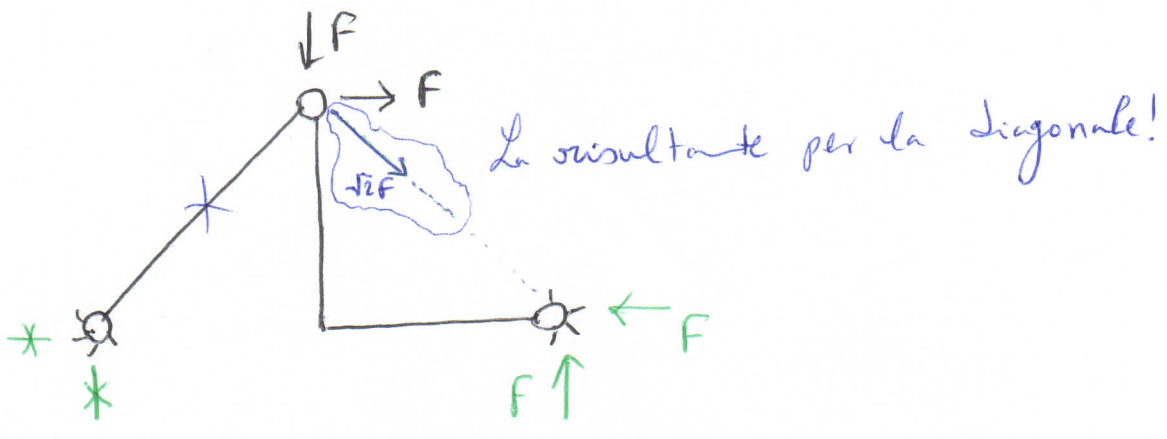 F
F
La risultante per la diagonale!
√2F
F
F